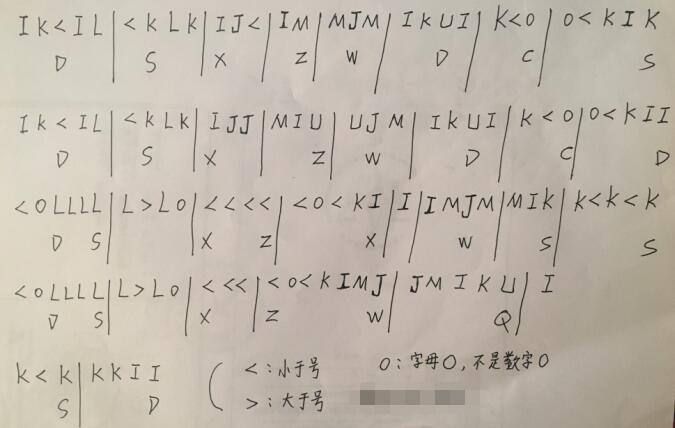 I K < I L | < K L K | I J < | I M | M J M | I K U I | K < O | O < K I K
D S X Z W D C S
I K < I L | < K L K | I J J | M I U | U J M | I K U I | K < O | O < K I I
D S X Z W D C D
< O L L L L | L > L O | < < < < | < O < K I | I | I M J M | M I K | K < K < K
D S X Z X W S S
< O L L L L | L > L O | < < < | < O < K I M J | J M I K U | I
D S X Z W Q
K < K | K K I I ( < : 小于号 O : 字母O, 不是数字0
S D > : 大于号